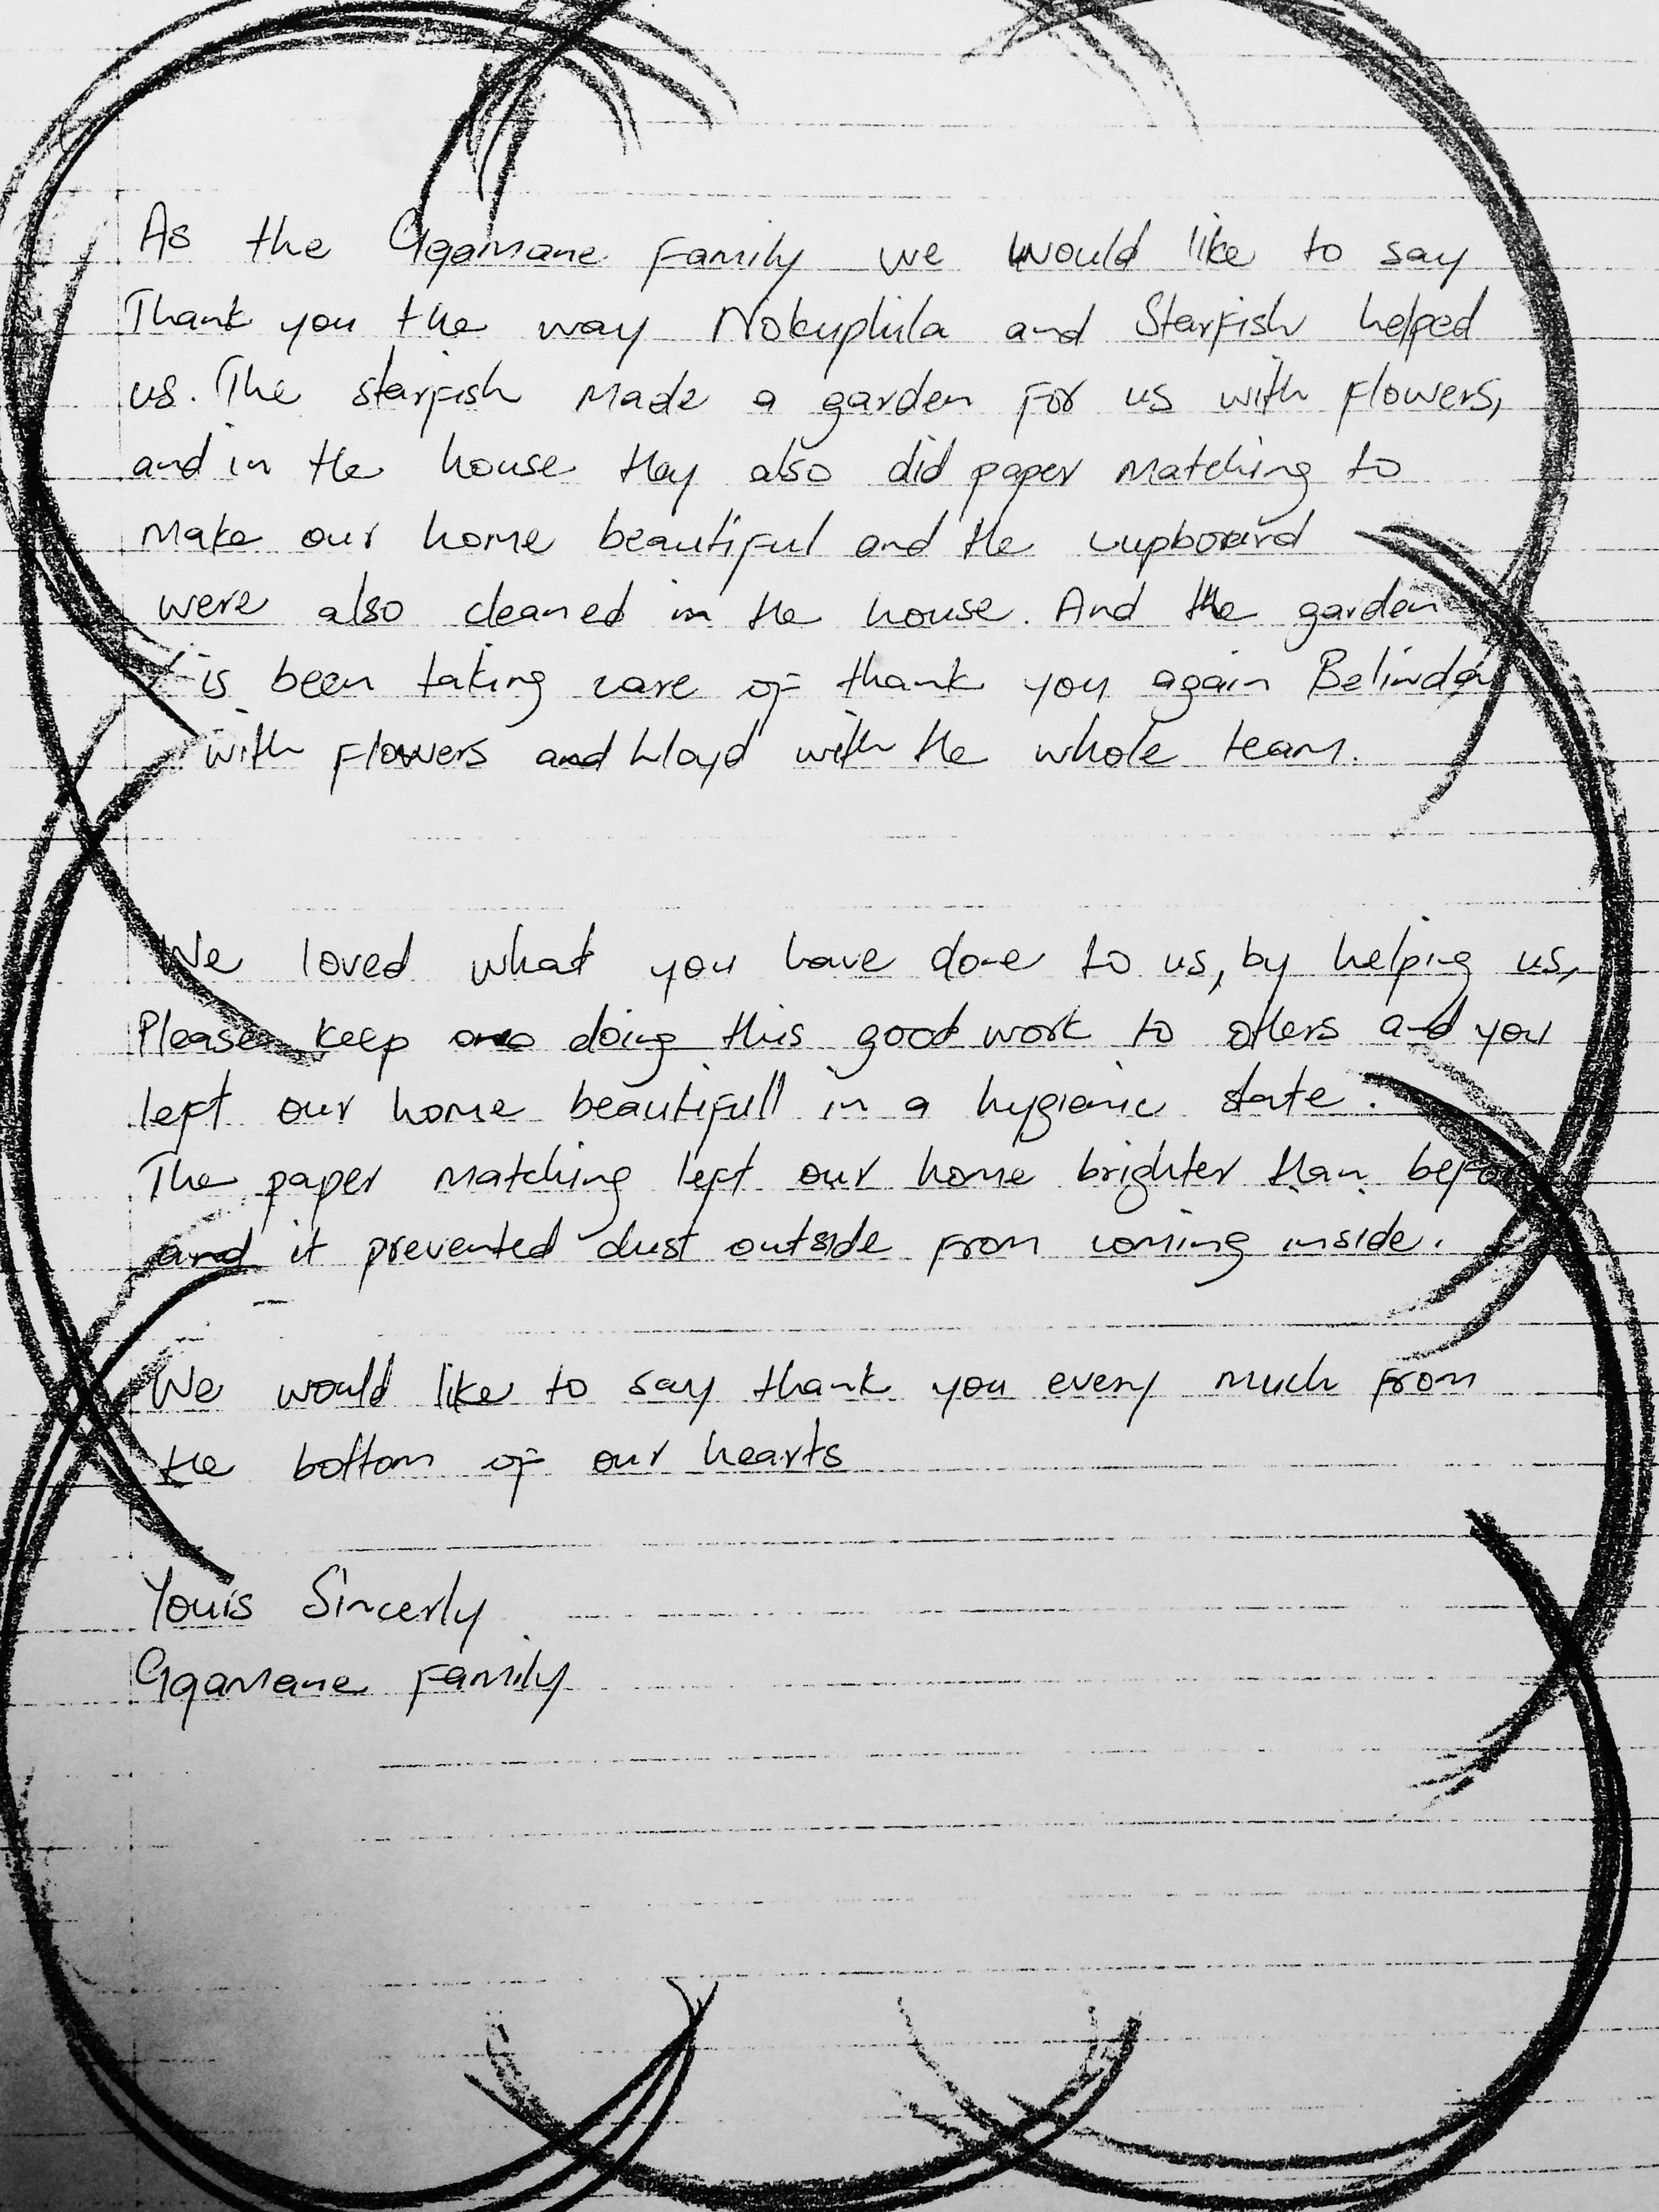 As the Gqamane Family we would like to say
Thank you the way Nokuphila and Starfish helped
us. The starfish made a garden for us with flowers,
and in the house they also did paper matching to
make our home beautiful and the cupboard
were also cleaned in the house. And the garden
is been taking care of thank you again Belinda
with flowers and Lloyd with the whole team.
We loved what you have done to us, by helping us,
Please keep doing this good work to others and you
left our home beautifull in a hygienic state.
The paper matching left our home brighter than before
and it prevented dust outside from coming inside.
We would like to say thank you every much from
the bottom of our hearts
Youis Sincerly
Gqamane Family